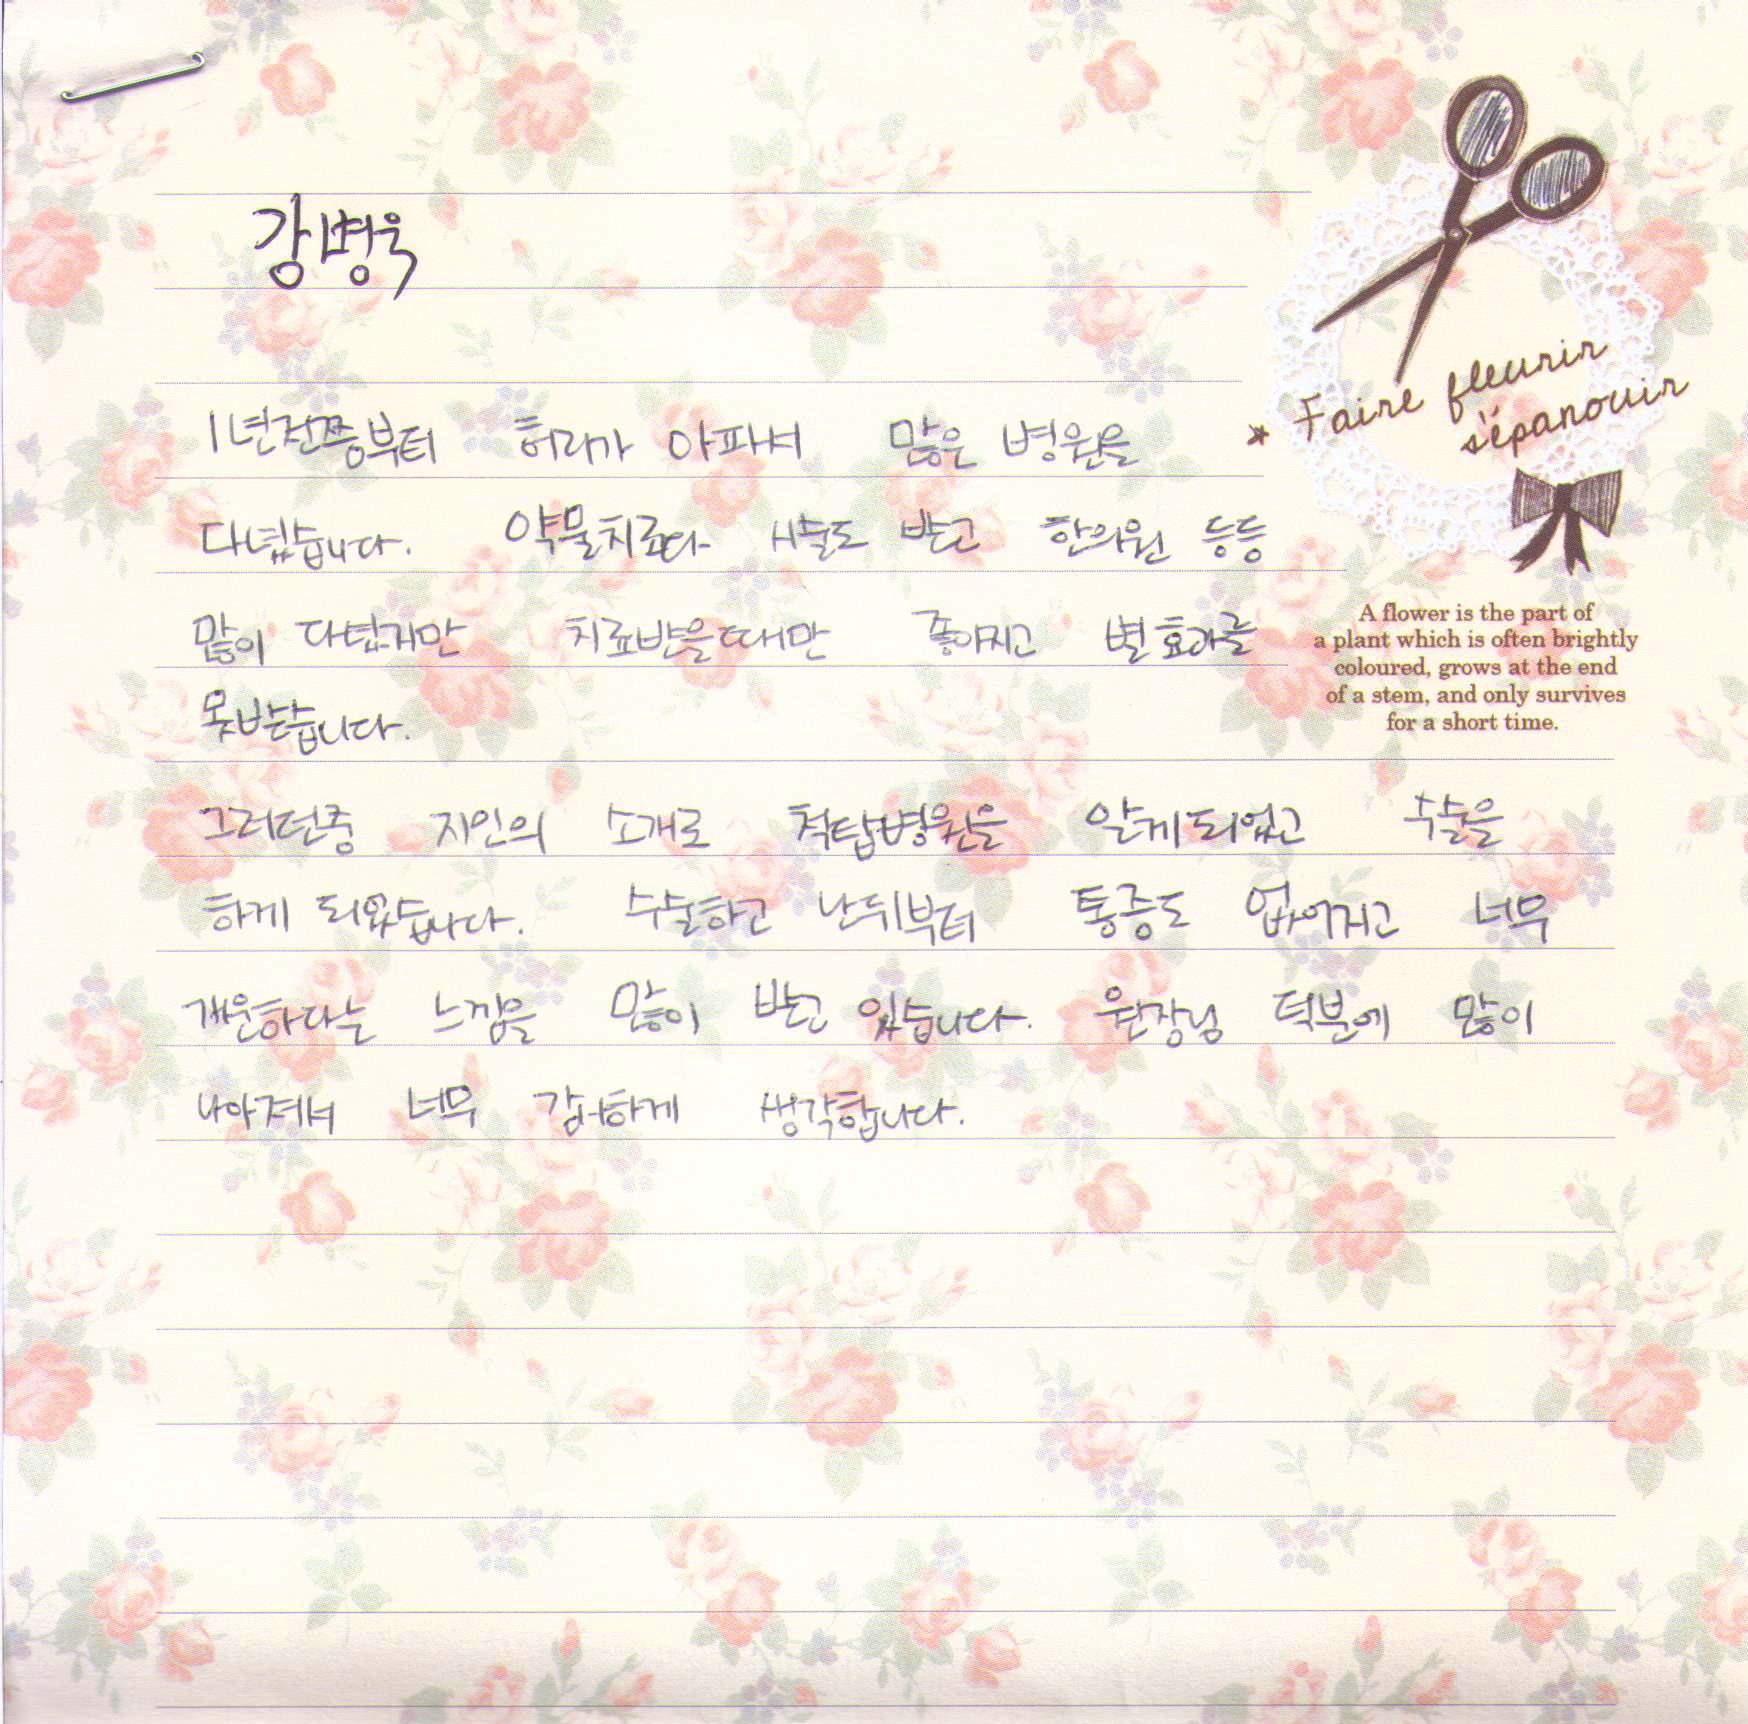 강병욱
1년전쯤부터 허리가 아파서 많은 병원을
다녔습니다. 약물치료다 시술도 받고 한의원 등등
많이 다녔지만 치료받을때만 좋아지고 별효과를
못받습니다.
그러던중 지인의 소개로 척탑병원을 알게되었고 수술을
하게 되었습니다. 수술하고 난뒤부터 통증도 없어지고 너무
개운하다는 느낌을 많이 받고 있습니다. 원장님 덕분에 많이
나아져서 너무 감사하게 생각합니다.
Faire fleurir
s'épanouir
A flower is the part of
a plant which is often brightly
coloured, grows at the end
of a stem, and only survives
for a short time.